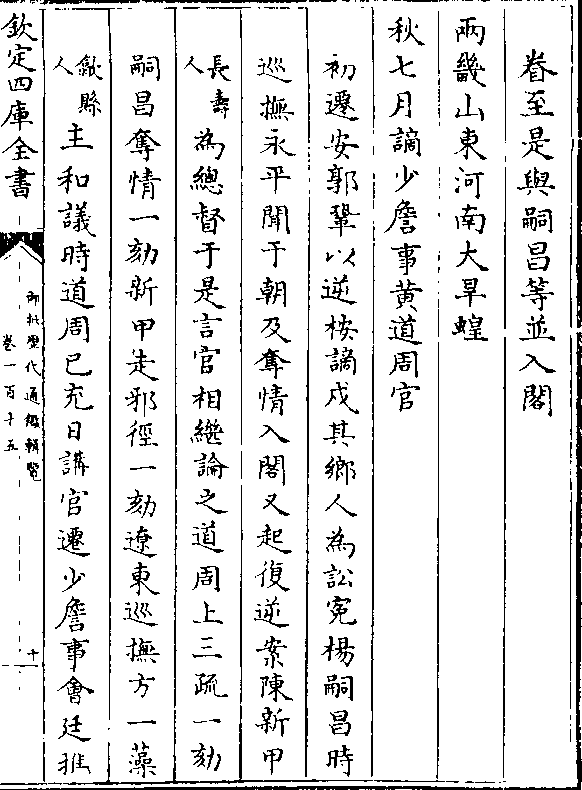 眷至是與嗣昌等並入閣
兩畿山東河南大旱蝗
秋七月謫少詹事黄道周官
初遷安郭鞏以逆桉謫戍其鄉人為訟寃楊嗣昌時
巡撫永平聞于朝及奪情入閣又起復逆案陳新甲
長壽人為總督于是言官相繼論之道周上三疏一劾
嗣昌奪情一劾新甲走邪徑一劾遼東巡撫方一藻
歙縣人主和議時道周已充日講官遷少詹事㑹廷推
欽定四庫全書
御批歷代通鑑輯覽
卷一百十五
十